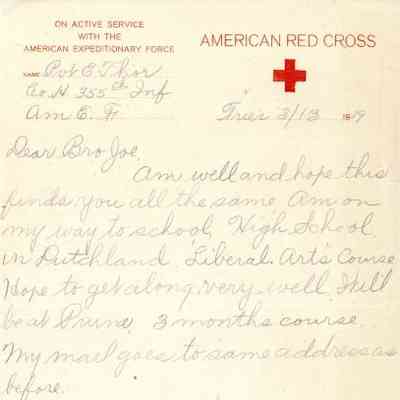 ON ACTIVE SERVICE
WITH THE
AMERICAN EXPEDITIONARY FORCE
AMERICAN RED CROSS
NAME Pvt E. Thor
Co. H 355th Inf
Am E. F
Trier 3/13 1919
Dear Bro Joe,
Am well and hope this
finds you all the same Am on
my way to school, High School
in Dutchland Liberal Arts Course
Hope to get along very well.
be at 3 months course.
My mael goes to same address as
before.